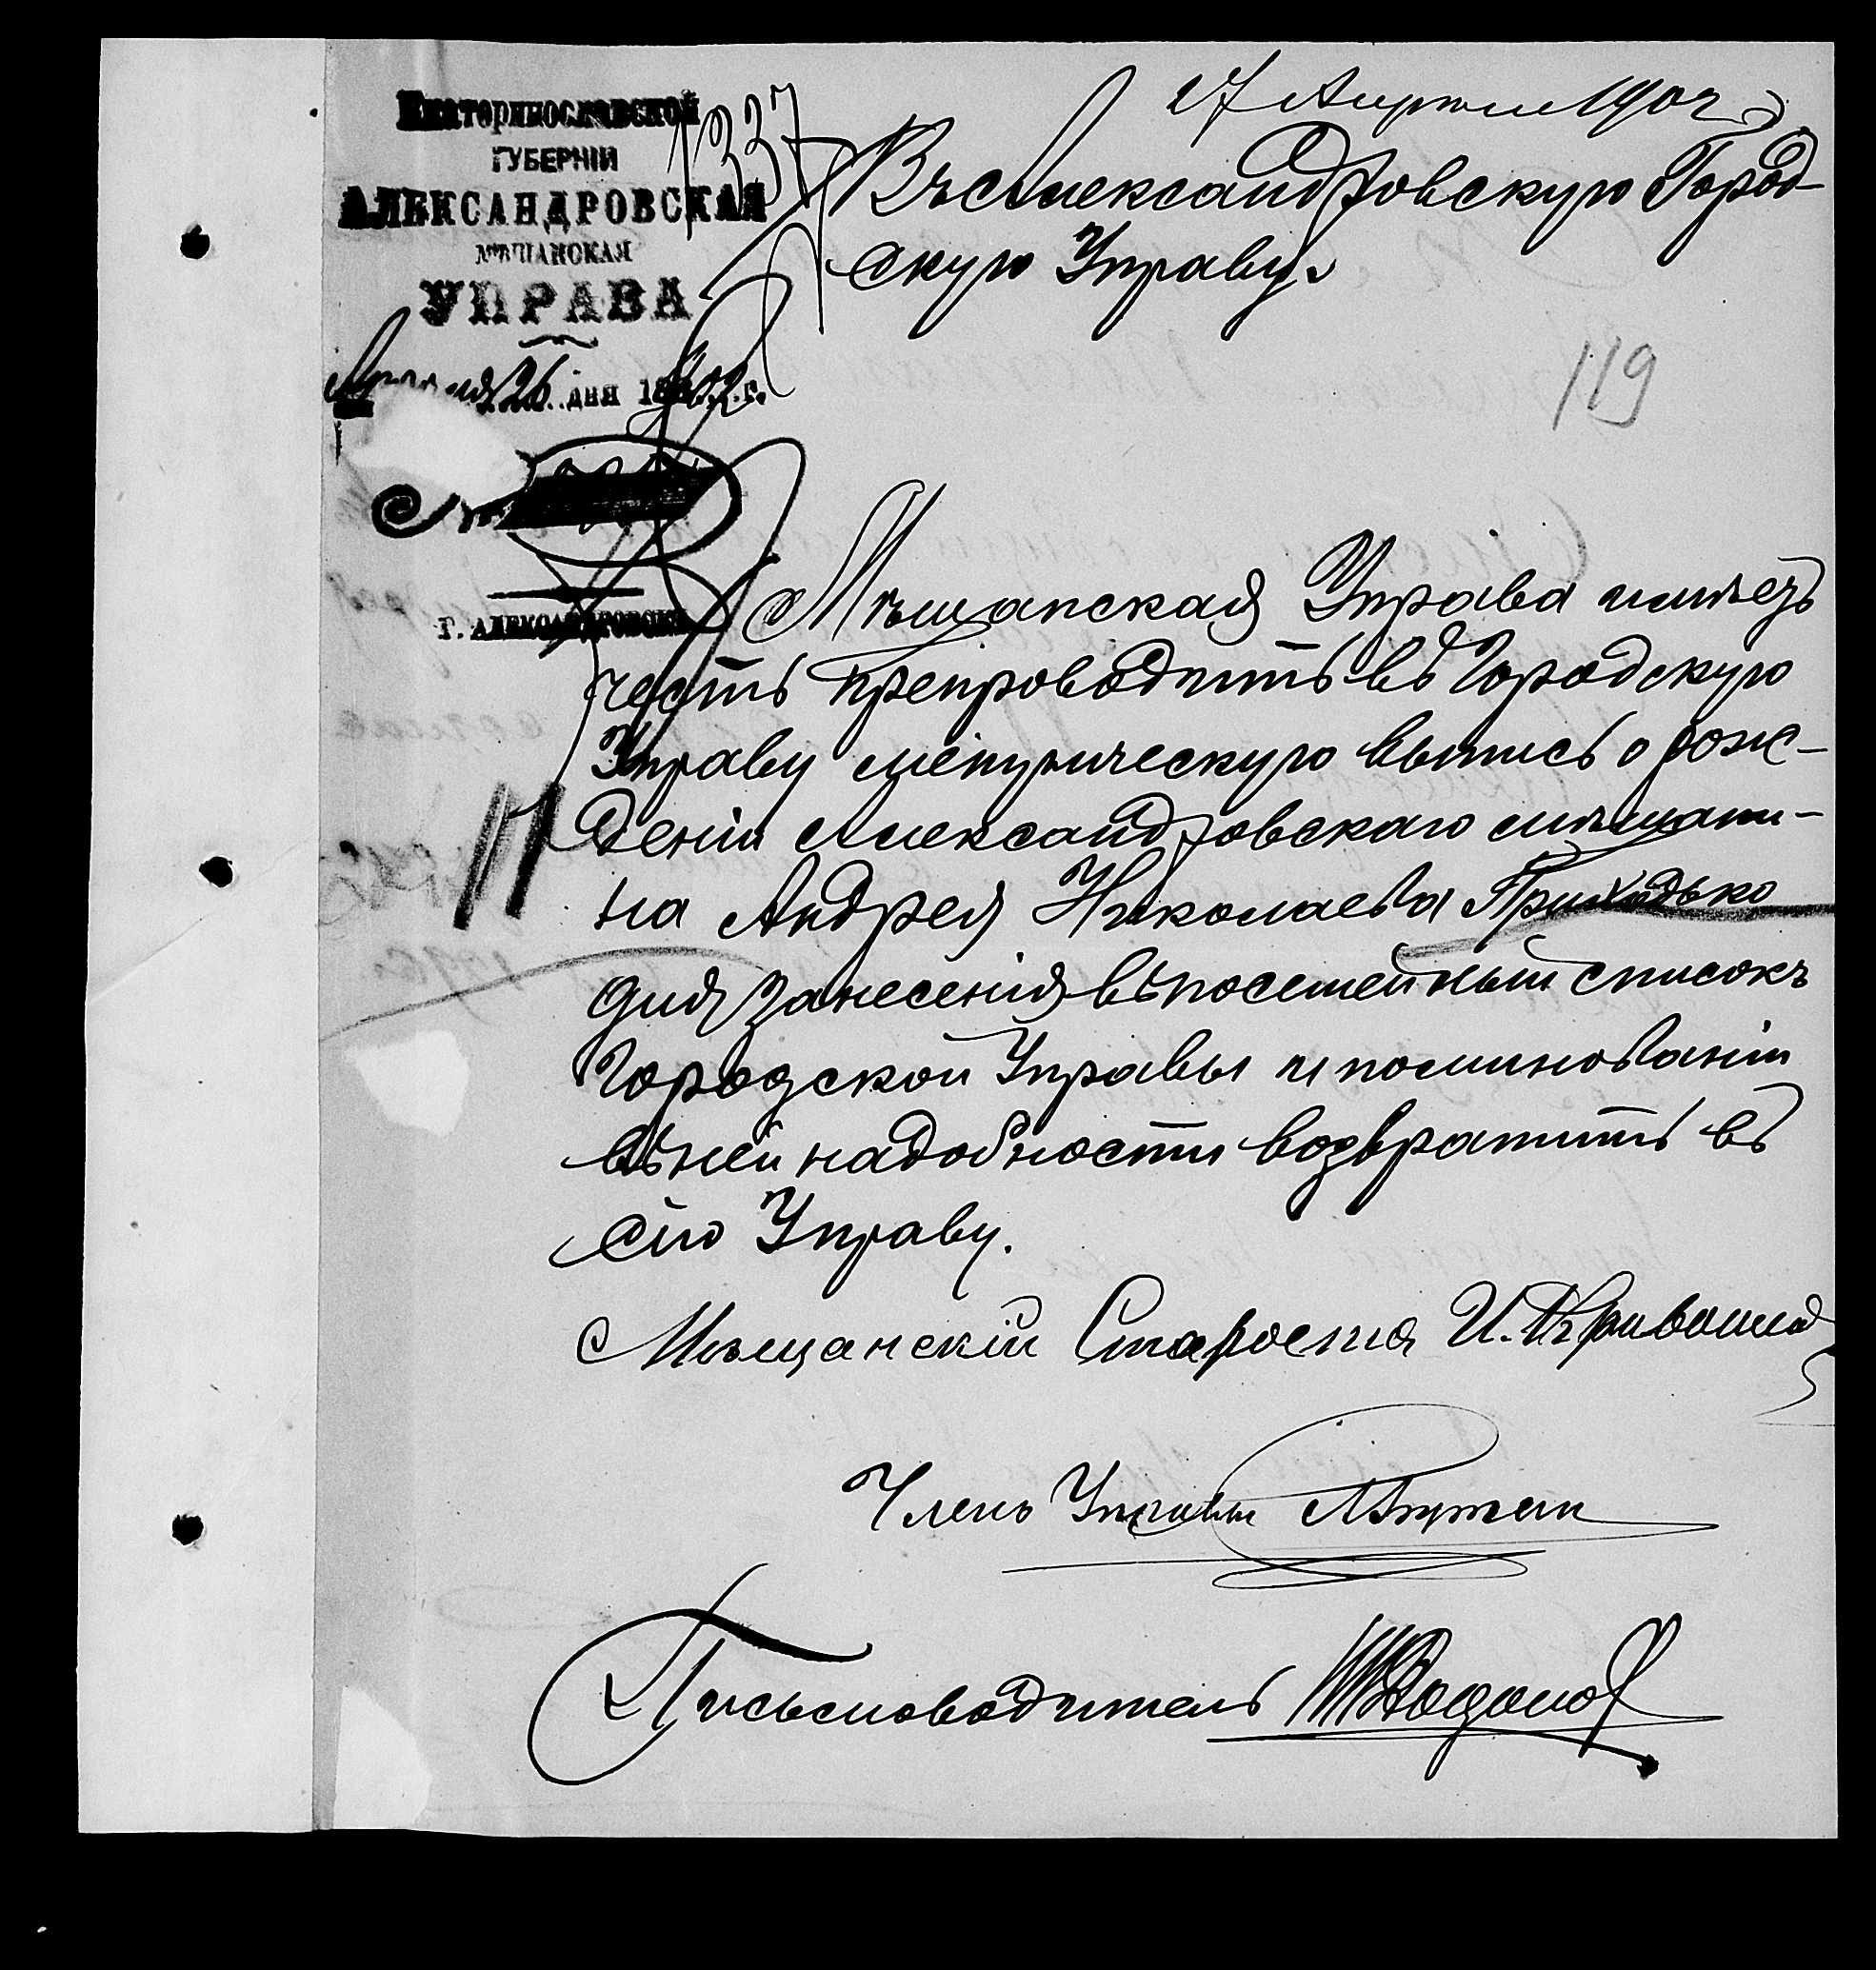 Екатеринославской
ГУБЕРНІИ
АЛЕКСАНДРОВСКАЯ
МѢЩАНСКАЯ
УПРАВА
Апрѣля 26 дня 1902 г.
г. АЛЕКСАНДРОВСКЪ
1337
27 Апрѣля 1902 г.
Въ Александровскую Город-
скую Управу.
119
Мѣщанская Управа имѣетъ
честь препроводить въ Городскую
Управу метрическую выпись о рож-
деніи Александровскаго мѣщани-
на Андрея Николаева Приходько
для занесенія въ посемейный списокъ
Городской Управы и по минованіи
въ ней надобности возвратить въ
сію Управу.
Мѣщанскій Староста И.
Членъ Управы
Письмоводитель